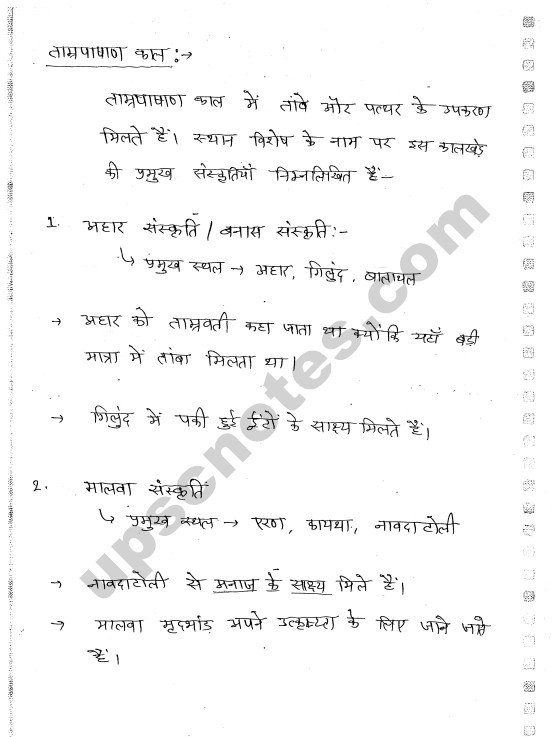 ताम्रपाषाण काल :→
ताम्रपाषाण काल में तांबे और पत्थर के उपकरण
मिलते हैं। स्थान विशेष के नाम पर इस कालखंड
की प्रमुख संस्कृतियाँ निम्नलिखित हैं-
1. अहार संस्कृति / बनास संस्कृति:-
↳ प्रमुख स्थल → अहार, गिलुंद, बालाथल
→ अहार को ताम्रवती कहा जाता था क्योंकि यहाँ बड़ी
मात्रा में तांबा मिलता था।
→ गिलुंद में पकी हुई ईंटों के साक्ष्य मिलते हैं।
2. मालवा संस्कृति
↳ प्रमुख स्थल → एरण, कायथा, नावदाटोली
→ नावदाटोली से अनाज के साक्ष्य मिले हैं।
→ मालवा मृदभांड अपने उत्कृष्टता के लिए जाने जाते
हैं।
upscnotes.com